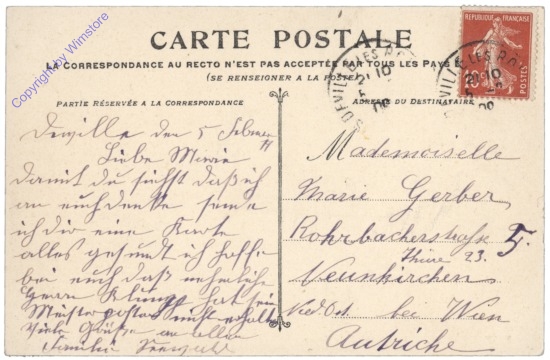 Copyright by Winstore
CARTE POSTALE
LA CORRESPONDANCE AU RECTO N'EST PAS ACCEPTÉE PAR TOUS LES PAYS
(SE RENSEIGNER A LA POSTE)
PARTIE RÉSERVÉE A LA CORRESPONDANCE
ADRESSE DU DESTINATAIRE
REPUBLIQUE FRANÇAISE
POSTES
10
Deville den 5 Februar
Liebe Mirzie
damit du siehst daß ich
an euch denke sende
ich dir eine Karte
alles gesund ich hoffe
bei euch daß nehmliche
hat kein
nicht erhalt
Viele Grüße an allen
Familie
Mademoiselle
Marie Gerber
Rohrbacherstrasse 5.
23.
Neunkirchen
bei Wien
Autriche